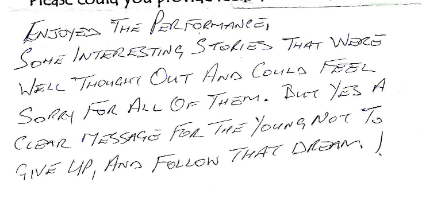 Please could you provide
ENJOYED THE PERFORMANCE,
SOME INTERESTING STORIES THAT WERE
WELL THOUGHT OUT AND COULD FEEL
SORRY FOR ALL OF THEM. BUT YES A
CLEAR MESSAGE FOR THE YOUNG NOT TO
GIVE UP, AND FOLLOW THAT DREAM. !